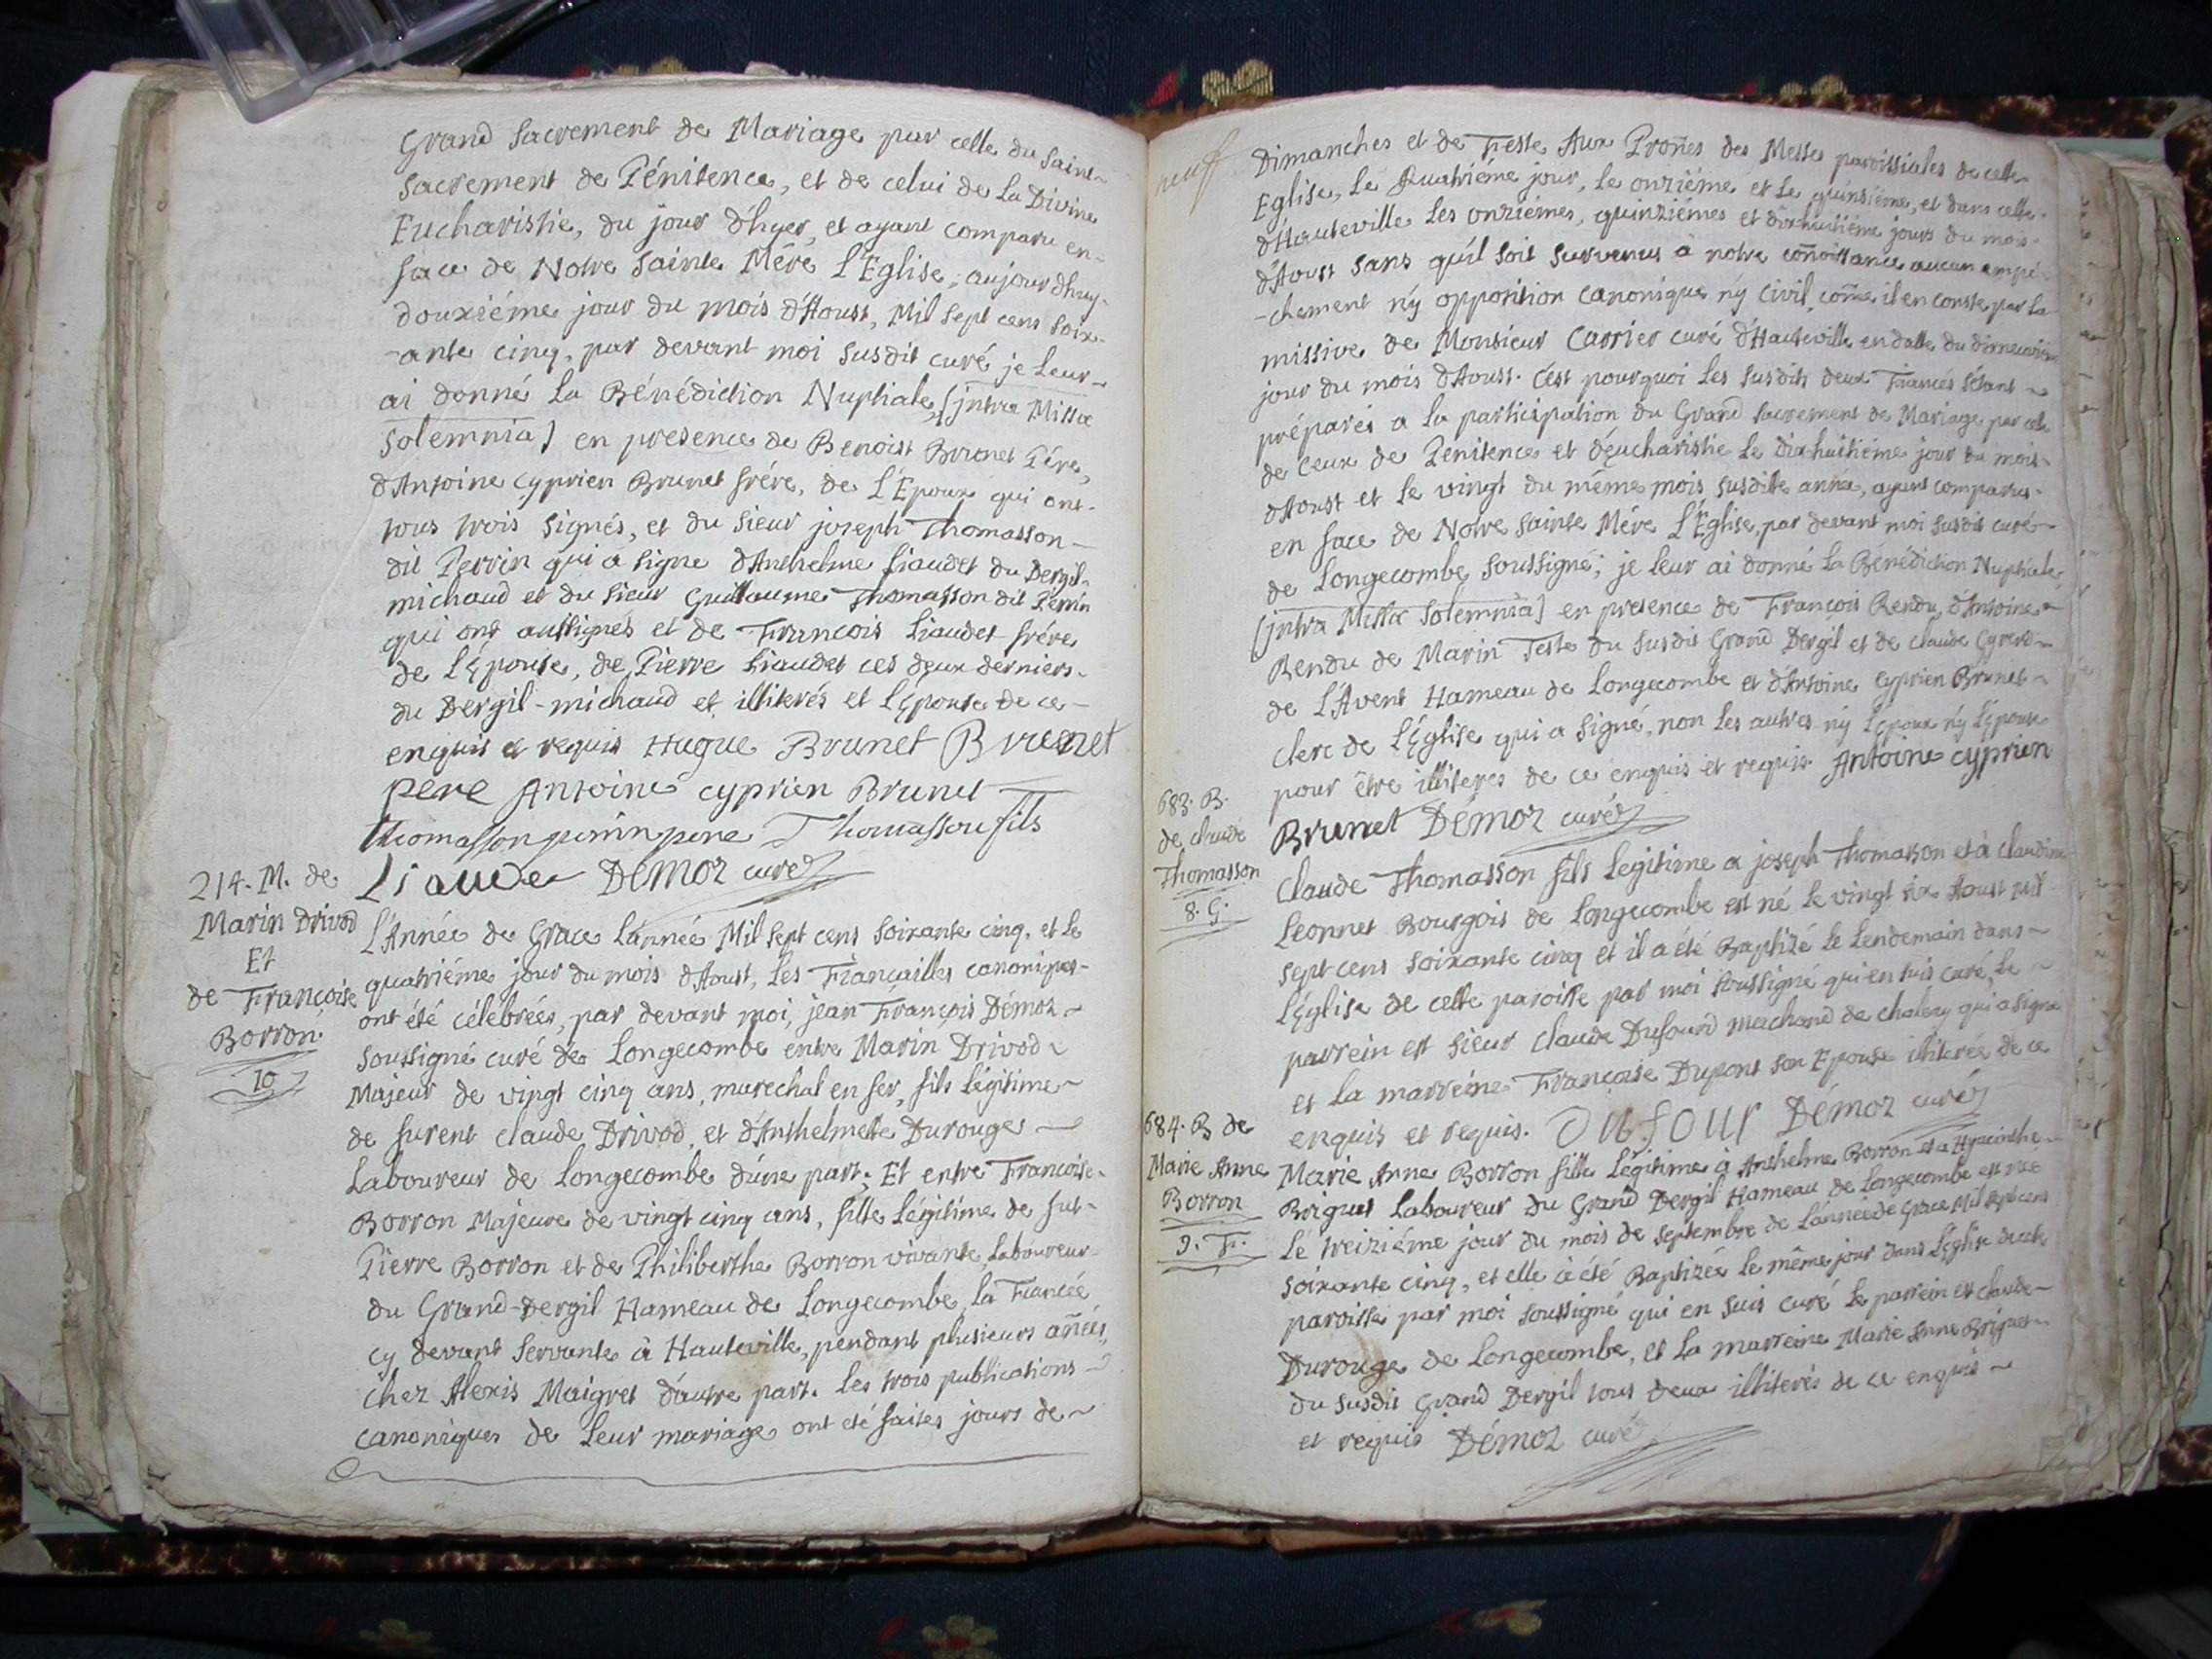 Grand Sacrement de Mariage par celle du Saint
Sacrement de Pénitence, et de celui de La Divine
Eucharistie, du jour d'hyer, et ayant comparu en
face de Notre Sainte Mére L'Eglise, aujourdhuy
douziéme jour du mois d'Aoust, Mil Sept cens Soix-
-ante cinq, par devant moi Susdit curé je Leur
ai donné La Bénédiction Nuptiale, (jntra Missæ
Solemnia) en presence de Benoist Brunet Pére,
d'Antoine Cyprien Brunet frére, de L'Epoux qui ont
tous trois Signés, et du Sieur joseph Thomasson
dit Perrin qui a signe d'Anthelme Liaudet du Dergil-
michaud et du Sieur Guillaume Thomasson dit Perrin
qui ont aussignés et de François Liaudet frére
de L'Épouse, de Pierre Liaudet ces deux derniers
du Dergil-michaud et illiterés et L'Épouse de ce
enquis et requis Hugue Brunet Brunet
pere Antoine cyprien Brunet
Thomasson perrin pere Thomasson fils
Liaude Démoz curé
214. M. de
Marin Drivod
Et
de Françoise
Borron.
10
L'Année de Grace L'année Mil Sept cens Soixante cinq, et Le
quatriéme jour du mois d'Aoust, Les Fiançailles canoniques
ont été célébrées, par devant moi, jean François Démoz
Soussigné curé de Longecombe entre Marin Drivod
Majeur de vingt cinq ans, marechal en fer, fils Légitime
de furent Claude Drivod, et d'Anthelmette Durouge
Laboureur de Longecombe d'une part; Et entre Françoise
Borron Majeure de vingt cinq ans, fille Légitime de fut
Pierre Borron et de Philiberthe Borron vivante, Laboureur
du Grand-Dergil Hameau de Longecombe, La Fiancée
cy devant Servante à Hauteville, pendant plusieurs anées,
chez Alexis Maigret d'autre part. Les trois publications
canoniques de Leur mariage ont eté faites jours de
neuf
Dimanches et de Feste Aux Prones des Messes paroissiales de cette
Eglise, Le Quatriéme jour, Le onziéme et Le quinziéme, et dans celle
d'Hauteville Les onziémes, quinziémes et dixhuitiéme jours du mois
d'Aoust Sans qu'il Soit Survenus à notre conoissance aucun empé-
-chement n'y opposition Canonique n'y Civil, come il en conste par La
missive de Monsieur Carrier curé d'Hauteville en datte du dixneuviéme
jour du mois d'Aoust. C'est pourquoi Les Susdits deux Fiancés s'étant
préparés a La participation du Grand Sacrement de Mariage par celle
de Ceux de Penitence et d'Eucharistie Le dix-huitiéme jour du mois
d'Aoust et Le vingt du même mois Susdite anée, ayant comparus
en face de Notre Sainte Mére L'Eglise, par devant moi Susdit curé
de Longecombe Soussigné; je Leur ai donné La Bénédiction Nuptiale
(jntra Missæ Solemnia) en presence de François Rendu, d'Antoine
Rendu de Marin Teste du Susdit Grand Dergil et de Claude
de L'Avent Hameau de Longecombe et d'Antoine Cyprien Brunet
Clerc de L'Église qui a Signé, non Les autres n'y L'Epoux n'y L'Épouse
pour être illiteres de ce enquis et requis Antoine cyprien
Brunet Démoz curé
683. B.
de Claude
Thomasson
8. G.
Claude Thomasson fils Legitime a joseph Thomasson et à Claudine
Leonnet Bourgois de Longecombe est né Le vingt six Aoust mil
Sept cens Soixante cinq et il a été Baptizé Le Lendemain dans
L'Église de cette paroisse par moi Soussigné qui en suis curé, Le
parrein est Sieur Claude Dufourd Machand de Chaley qui a signé
et La marreine Françoise Dupont son Epouse illiterée de ce
enquis et requis. Dufour Démoz curé
684. B de
Marie Anne
Borron
9. F.
Marie Anne Borron fille Légitime à Anthelme Borron et a Hyacinthe
Briguet Laboureur du Grand Dergil Hameau de Longecombe est née
Le treiziéme jour du mois de Septembre de L'année de Grace Mil Sept cens
Soixante cinq, et elle à été Baptizée Le même jour dans L'Eglise de cette
paroisse par moi Soussigné qui en suis curé Le parrein est Claude
Durouge de Longecombe, et La marreine Marie Anne Briguet
du Susdit Grand Dergil tous deux illiterés de ce enquis
et requis Démoz curé